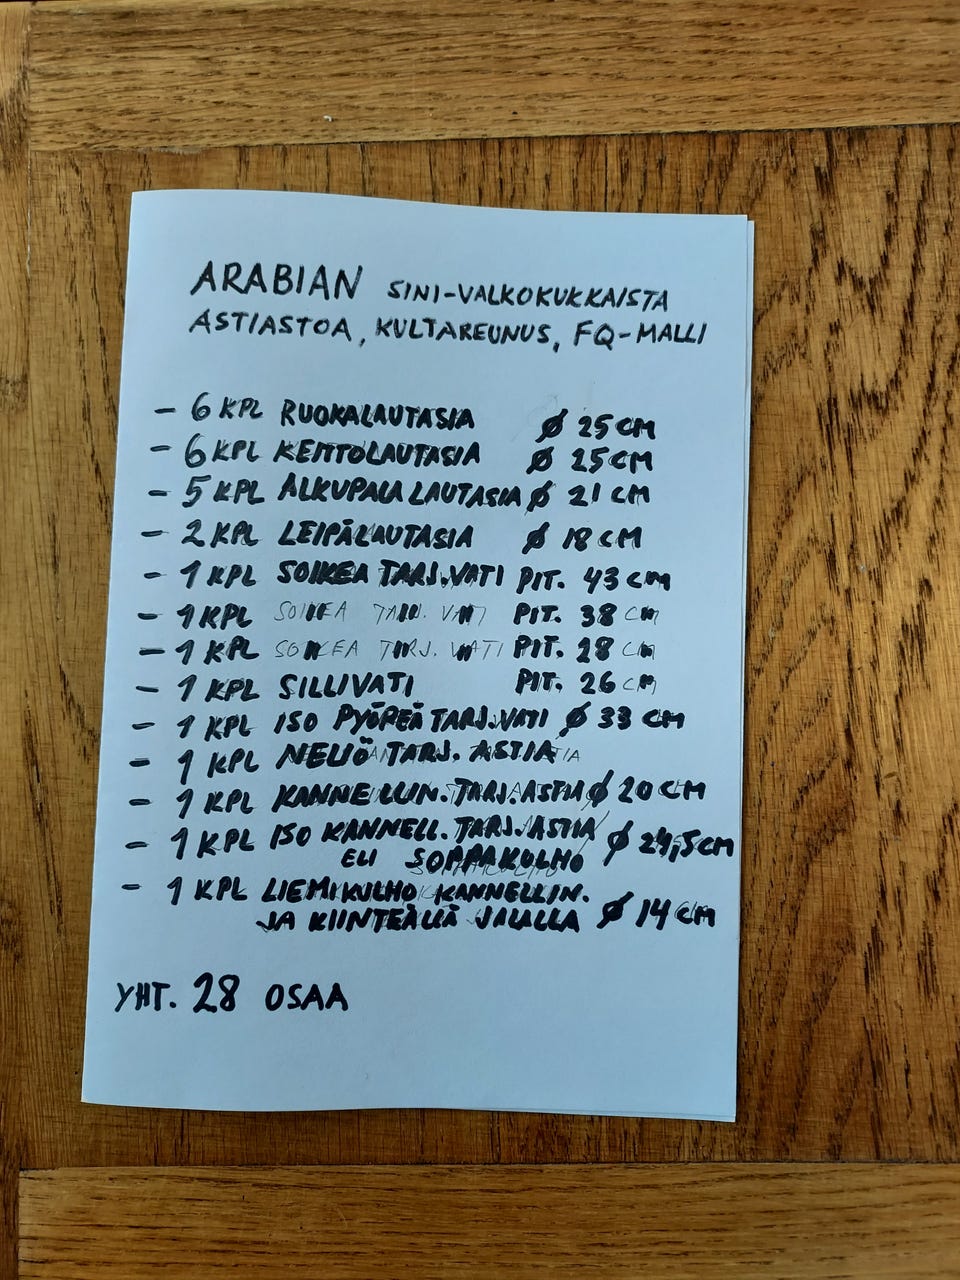 ARABIAN SINI-VALKOKUKKAISTA
ASTIASTOA, KULTAREUNUS, FQ-MALLI
- 6 KPL RUOKALAUTASIA Ø 25 CM
- 6 KPL KEITTOLAUTASIA Ø 25 CM
- 5 KPL ALKUPALALAUTASIA Ø 21 CM
- 2 KPL LEIPÄLAUTASIA Ø 18 CM
- 1 KPL SOIKEA TARJ.VATI PIT. 43 CM
- 1 KPL SOIKEA TARJ. VATI PIT. 38 CM
- 1 KPL SOIKEA TARJ. VATI PIT. 28 CM
- 1 KPL SILLIVATI PIT. 26 CM
- 1 KPL ISO PYÖREÄ TARJ.VATI Ø 33 CM
- 1 KPL NELIÖ TARJ. ASTIA
- 1 KPL KANNELLIN. TARJ.ASTIA Ø 20 CM
- 1 KPL ISO KANNELL. TARJ.ASTIA Ø 24,5 CM
ELI SOPPAKULHO
- 1 KPL LIEMIKULHO KANNELLIN.
JA KIINTEÄLLÄ JALALLA Ø 14 CM
YHT. 28 OSAA